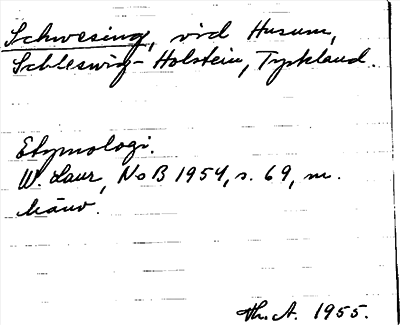 Schwesing, vid Husum,
Schleswig-Holstein, Tyskland.
Etymologi.
W. Laur, NoB 1954, s. 69, m.
hänv.
Th. A. 1955.